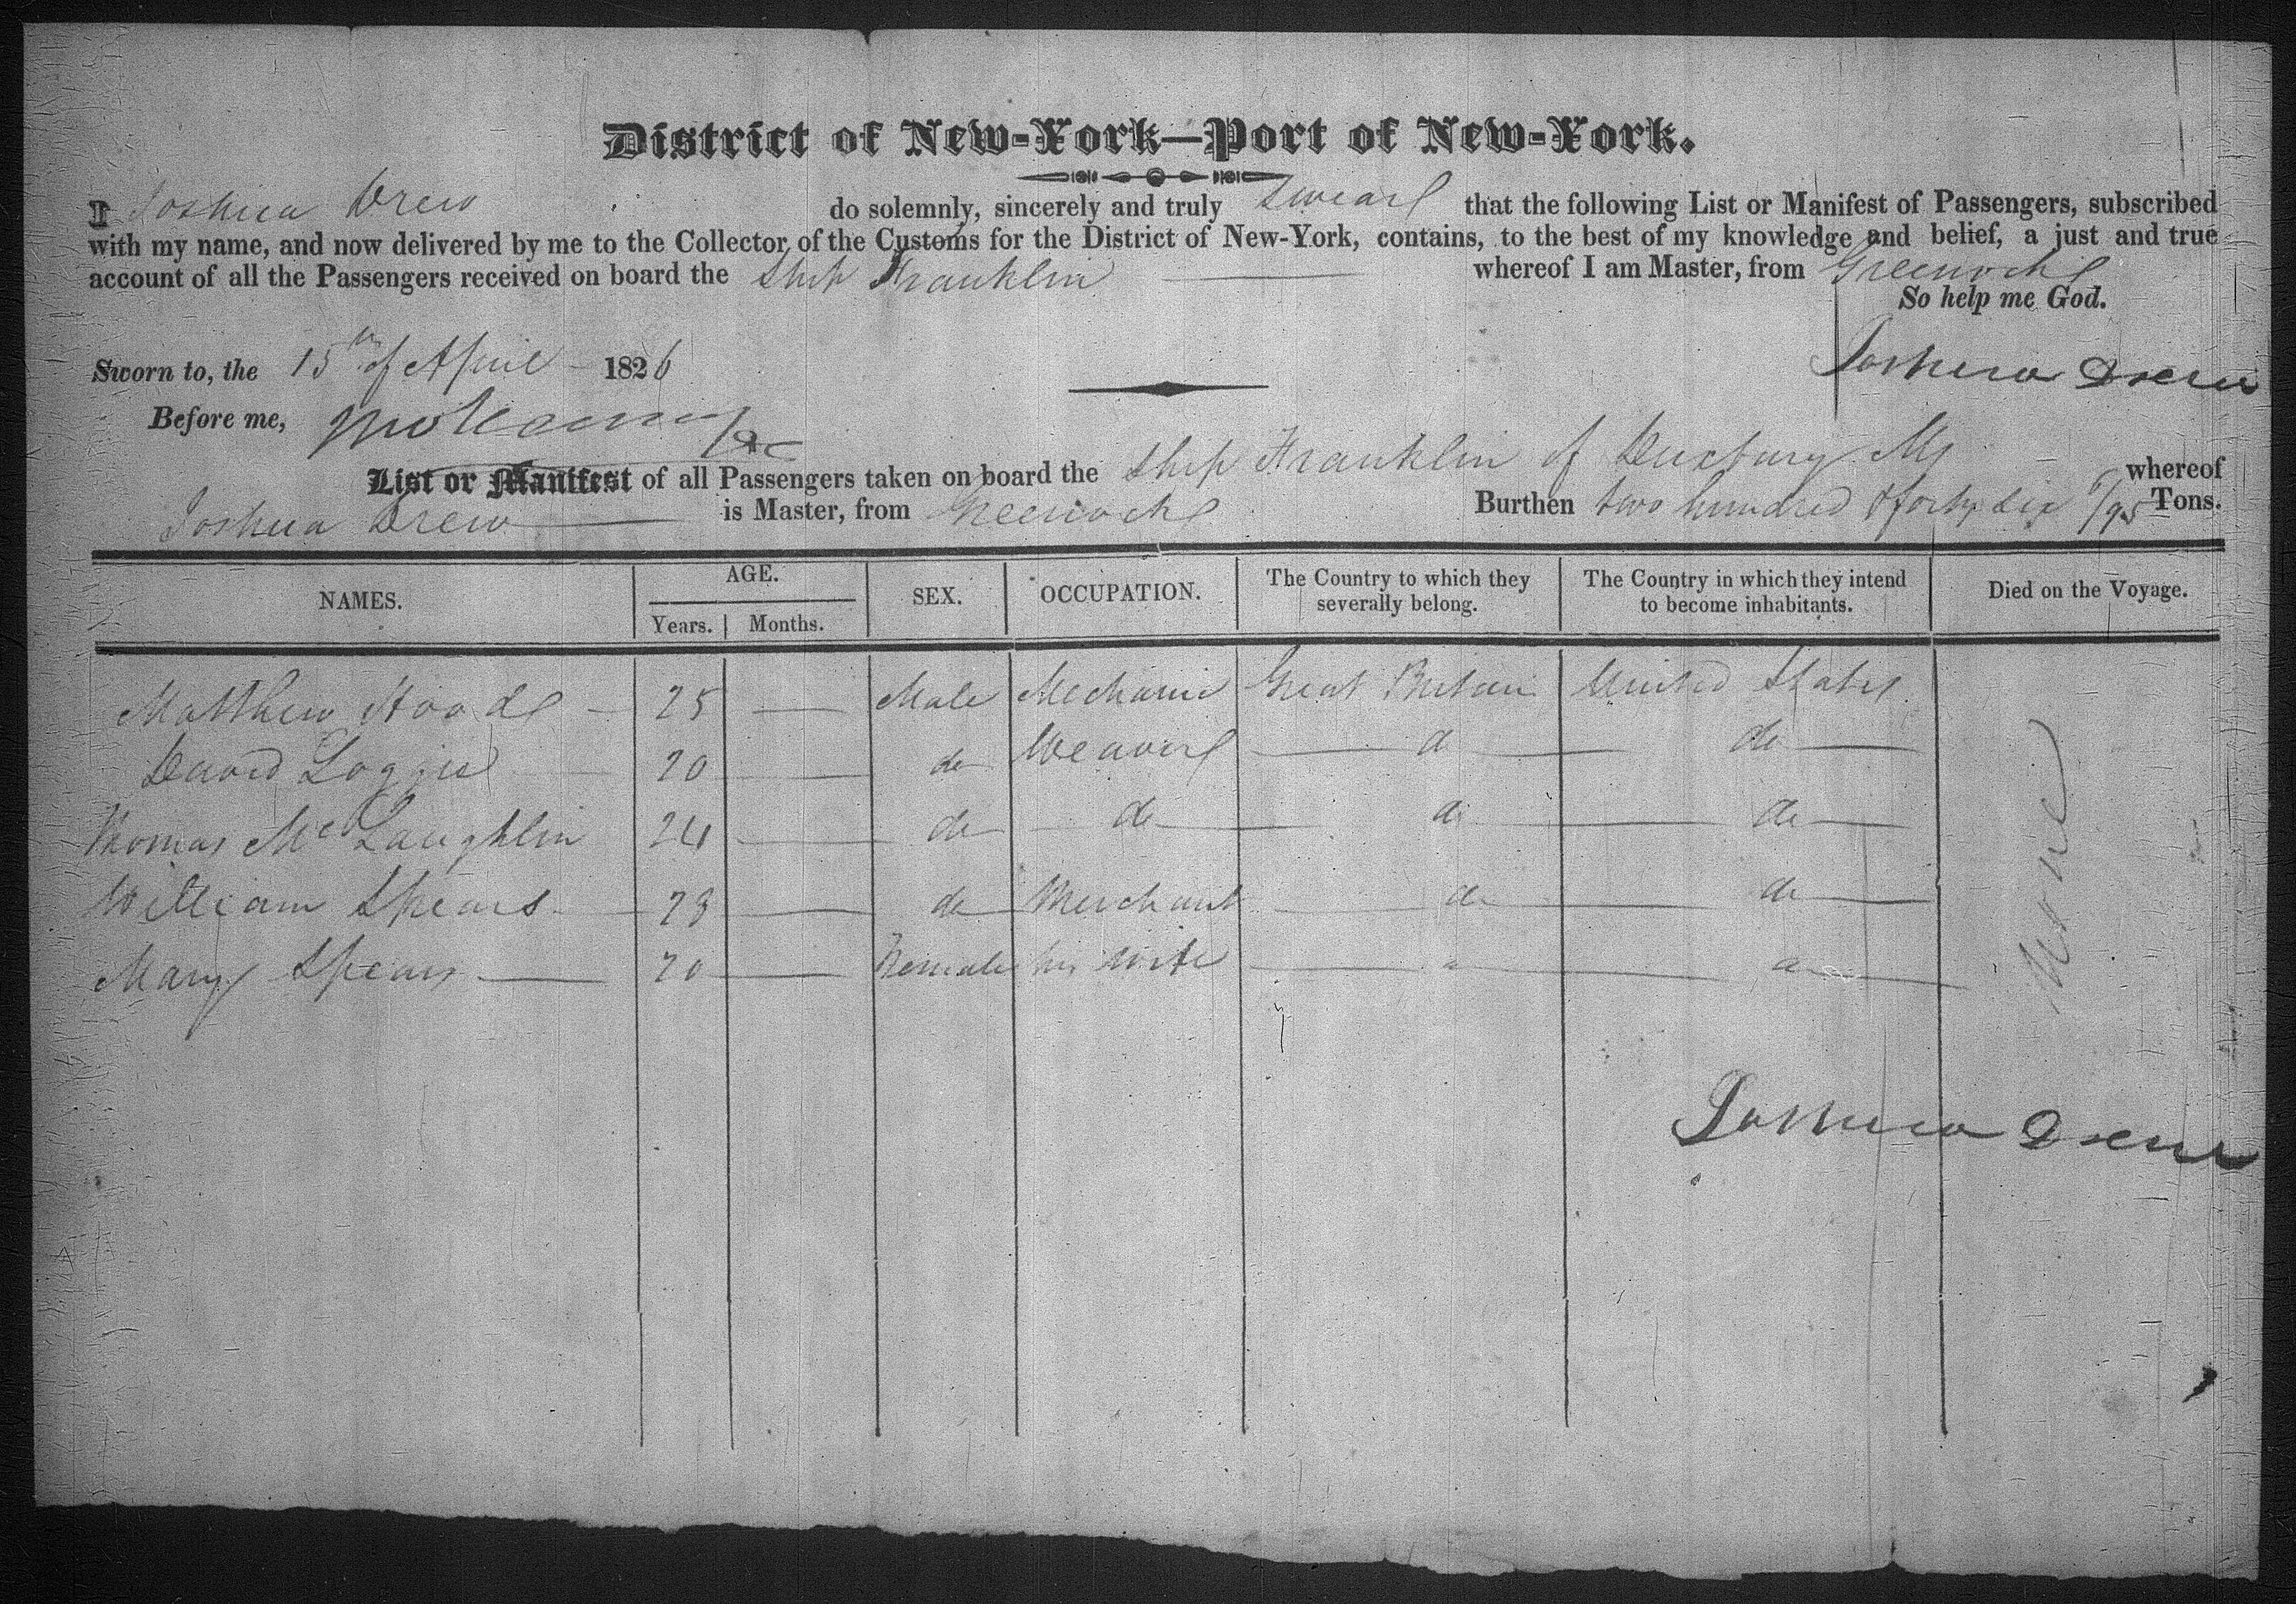 District of New-York—Port of New-York.
I Joshua Drew do solemnly, sincerely and truly swear that the following List or Manifest of Passengers, subscribed
with my name, and now delivered by me to the Collector of the Customs for the District of New-York, contains, to the best of my knowledge and belief, a just and true
account of all the Passengers received on board the Ship Franklin whereof I am Master, from Greenock
So help me God.
Sworn to, the 15th of April 1826
Joshua Drew
Before me,
List or Manifest of all Passengers taken on board the Ship Franklin of Duxbury Ms whereof
Joshua Drew is Master, from Greenock Burthen two hundred & forty six 6/95 Tons.
NAMES. AGE. SEX. OCCUPATION. The Country to which they severally belong. The Country in which they intend to become inhabitants. Died on the Voyage.
Years. Months.
Matthew Hood 25 — Male Mechanic Great Britain United States
David Loggie 20 — do Weaver do do
Thomas McLaughlin 24 — do do do do
William Spears 23 — do Merchant do do
Mary Spears 20 — Female his wife " do
None
Joshua Drew